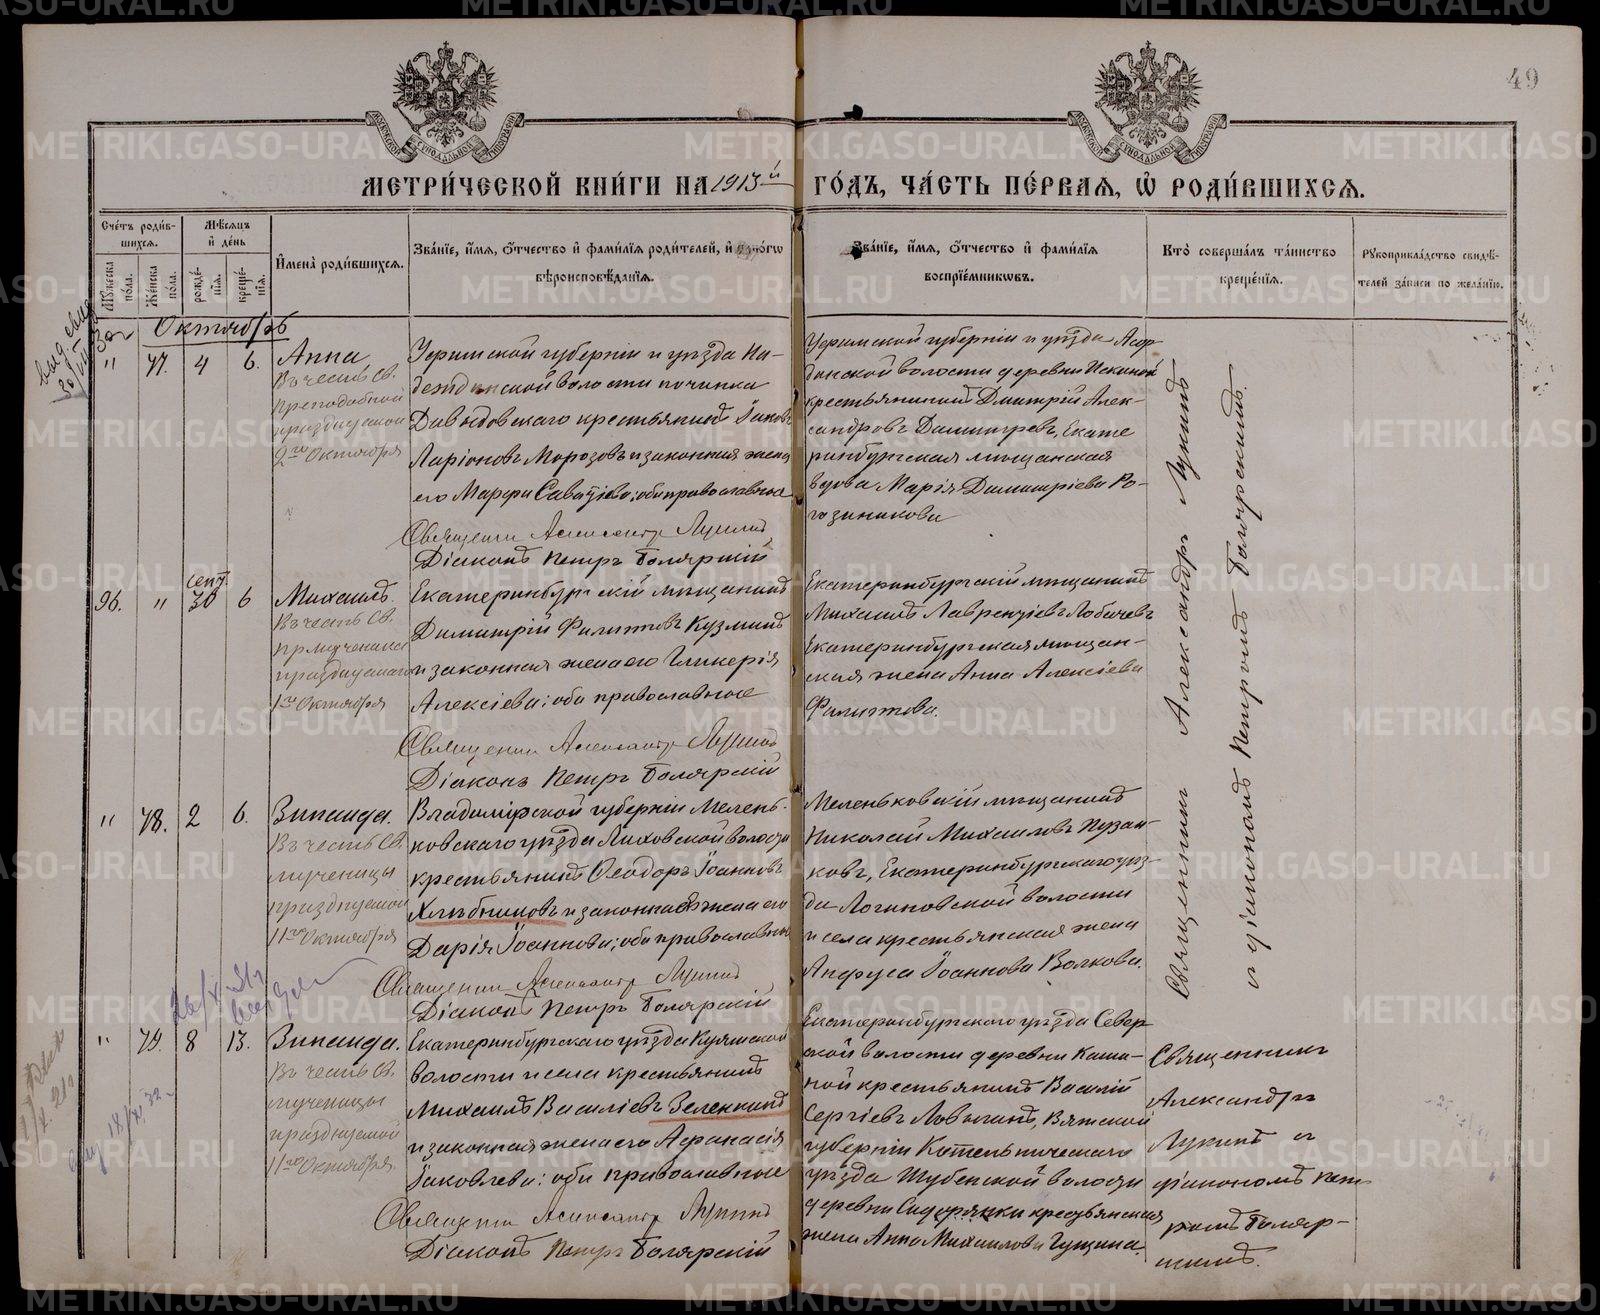 49
МЕТРИ́ЧЕСКОЙ КНИ́ГИ НА 1913й ГО́ДЪ, ЧА́СТЬ ПЕ́РВАЯ, Ѡ҆ РОДИ́ВШИХСЯ.
Сче́тъ роди́в-
шихся.
Мѣ́сяцъ
и҆ де́нь
Мꙋ́жеска по́ла.
Же́нска по́ла.
рожде́-
нїя.
креще́-
нїя.
И҆мена̀ роди́вшихся.
Зва́нїе, и҆́мя, о҆́тчество и҆ фами́лїя роди́телей, и҆ како́гѡ
вѣроисповѣ́данїя.
Зва́нїе, и҆́мя, о҆́тчество и҆ фами́лїя
воспрїе́мникѡвъ.
Кто̀ соверша́лъ та́инство
креще́нїя.
Рꙋкоприкла́дство свидѣ́-
телей за́писи по жела́нїю.
Октябрь
" 77. 4 6. Анна
Въ честь Св.
Преподобной
празднуемой
2го Октября
Уфимской губерніи и уѣзда На-
деждинской волости починка
Давыдовскаго крестьянинъ Іаковъ
Ларіоновъ Морозовъ и законная жена
его Марфа Саватіева; оба православные
Священникъ Александръ Лукинъ
Діаконъ Петръ Боярскій
Уфимской губерніи и уѣзда
волости деревни
крестьянинъ Дмитрій Алек-
сандровъ Димитревъ, Екате
ринбургская мѣщанская
вдова Марія Димитріева Ро-
газинникова
96. " сент. 30 6 Михаилъ.
Въ честь Св.
прмученика
празднуемаго
1го Октября
Екатеринбургскій мѣщанинъ
Димитрій Филипповъ Кузминъ
и законная жена его Гликерія
Алексіева; оба православные
Священникъ Александръ Лукинъ
Діаконъ Петръ Боярскій
Екатеринбургскій мѣщанинъ
Михаилъ Лаврентіевъ Лобачевъ
Екатеринбургская мѣщан-
ская жена Анна Алексіева
Филиппова.
" 78. 2 6. Зинаида.
Въ честь Св.
мученицы
празднуемой
11го Октября
Владимірской губерніи Мелень-
ковскаго уѣзда Ляховской волости
крестьянинъ Ѳеодоръ Іоанновъ
Хлѣбниковъ и законная жена его
Дарія Іоаннова; оба православные
Священникъ Александръ Лукинъ
Діаконъ Петръ Боярскій
Меленьковскій мѣщанинъ
Николай Михаиловъ Пузан-
ковъ, Екатеринбургскаго уѣз-
да Логиновской волости
и села крестьянская жена
Анфуса Іоаннова Волкова.
Священникъ Александръ Лукинъ
и діаконъ Петръ Боярскимъ.
" 79. 8 13. Зинаида.
Въ честь Св.
мученицы
празднуемой
11го Октября
Екатеринбургскаго уѣзда Куяшской
волости и села крестьянинъ
Михаилъ Василіевъ Зеленкинъ
и законная жена его Афанасія
Іаковлева; оба православные
Священникъ Александръ Лукинъ
Діаконъ Петръ Боярскій
Екатеринбургскаго уѣзда Север
ской волости деревни Каши-
ной крестьянинъ Василій
Сергіевъ Вятской
губерніи Котельническаго
уѣзда волости
деревни крестьянская
жена Анна Михаилова Гущина.
Священникъ
Александръ
Лукинъ и
діакономъ Пет
ромъ Бояр-
скимъ.
METRIKI.GASO-URAL.RU